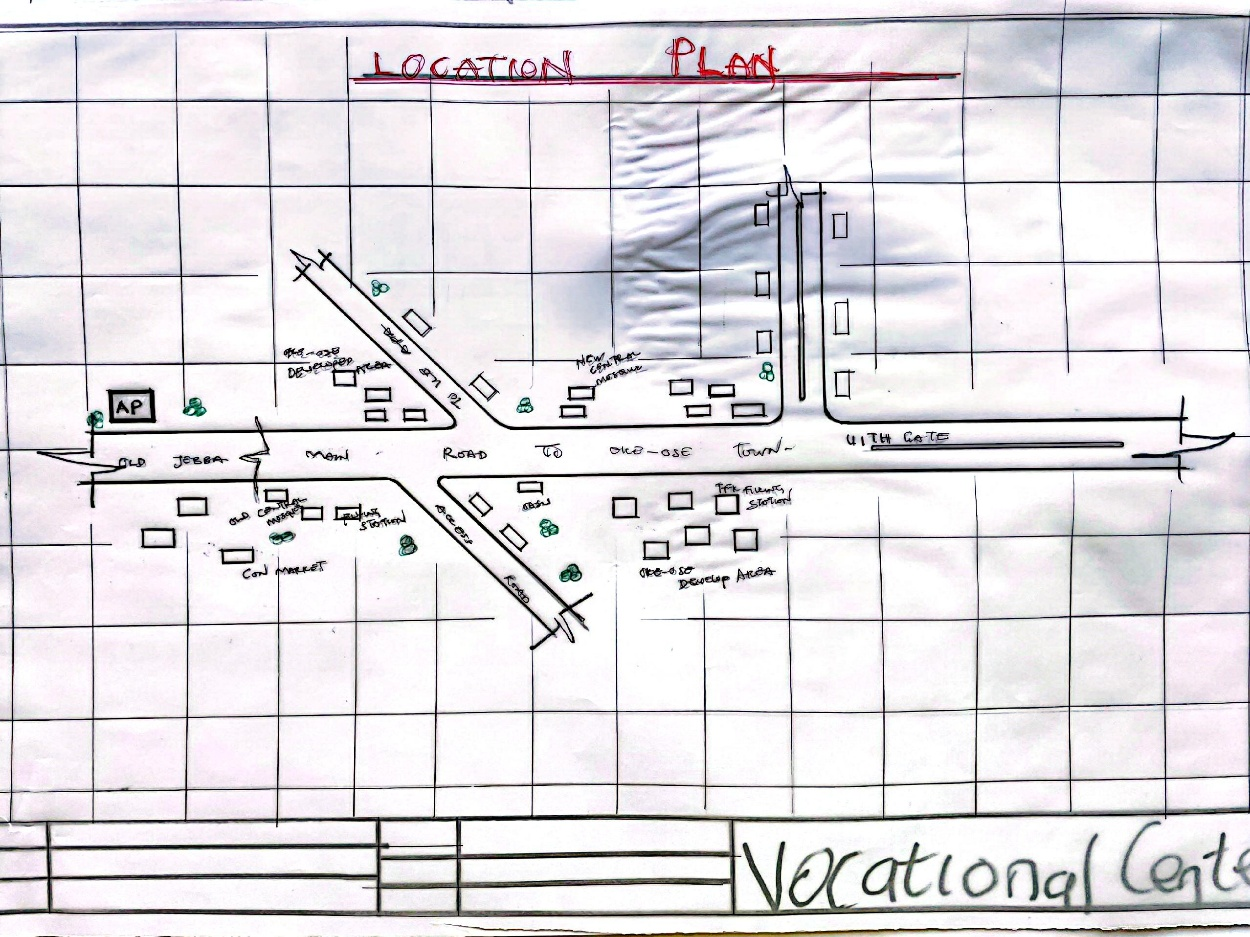 LOCATION PLAN
OKE-OSE
DEVELOPED AREA
NEW
CENTRAL
MOSQUE
AP
OLD JEBBA MAIN ROAD TO OKE-OSE TOWN
WITH GATE
OLD CENTRAL
MOSQUE
FILLING
STATION
COW MARKET
ACCESS
ROAD
FILLING
STATION
OKE-OSE
DEVELOP AREA
Vocational Cente